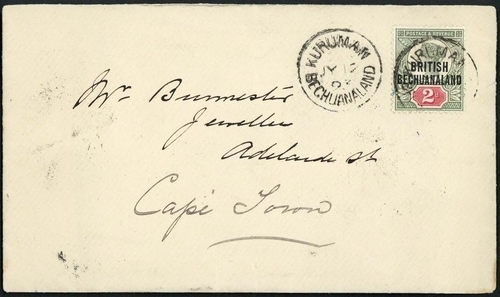 POSTAGE & REVENUE
BRITISH
BECHUANALAND
2d
KURUMAN
JY 12
BECHUANALAND
KURUMAN
Mr. Burmester
Jeweller
Adelaide St
Cape Town